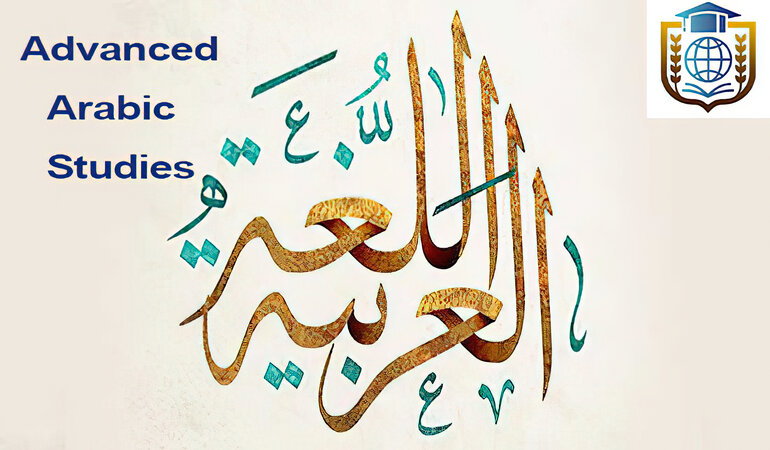 Advanced
Arabic
Studies
اللغة
العربية